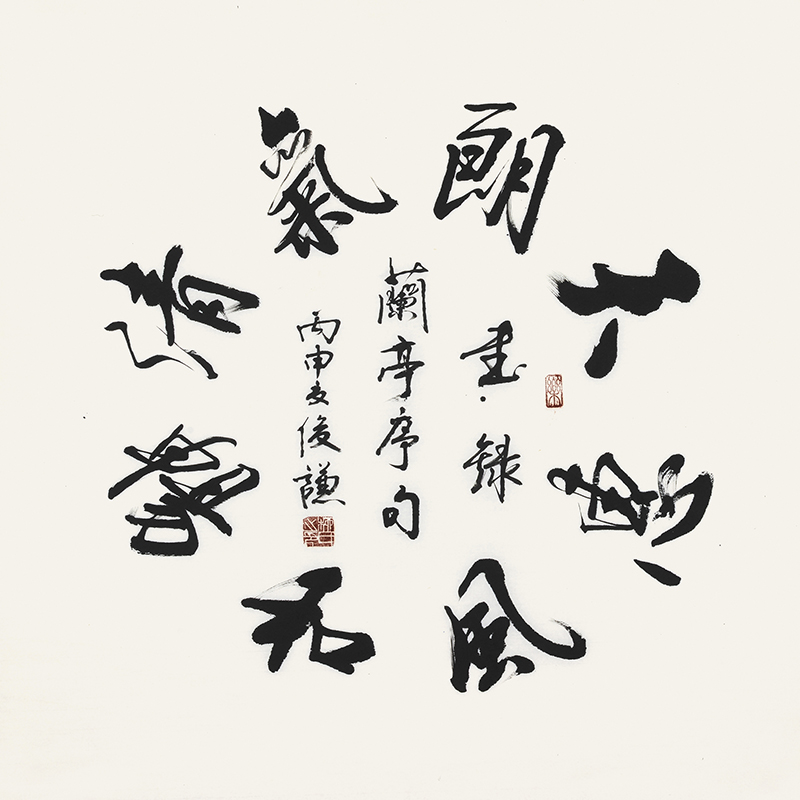 天朗氣清
惠風和暢
書錄
蘭亭序句
丙申夏俊謙